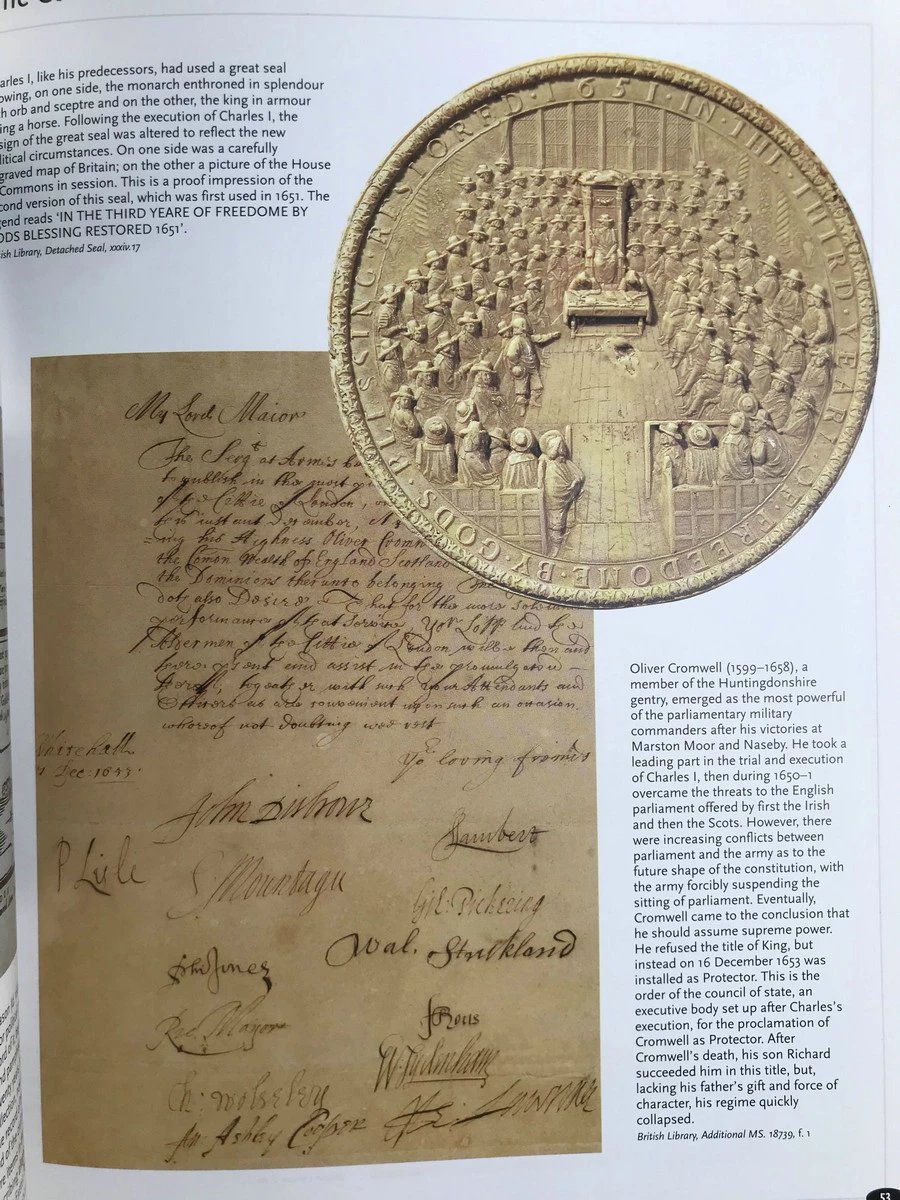 arles I, like his predecessors, had used a great seal
owing, on one side, the monarch enthroned in splendour
h orb and sceptre and on the other, the king in armour
ing a horse. Following the execution of Charles I, the
sign of the great seal was altered to reflect the new
litical circumstances. On one side was a carefully
graved map of Britain; on the other a picture of the House
Commons in session. This is a proof impression of the
cond version of this seal, which was first used in 1651. The
gend reads ‘IN THE THIRD YEARE OF FREEDOME BY
ODS BLESSING RESTORED 1651’.
ish Library, Detached Seal, xxxiv.17
IN·THE·THIRD·YEARE·OF·FREEDOME·BY·GODS·BLESSING·RESTORED·1651
My Lord Maior
The Sergt at Armes
to publish in the most
of the Cittie of London,
this instant December,
ing his Highness Oliver Cromw
the Comon Wealth of England Scotland
the Dominions therunto belonging
doth also Desire That for the more
performance of that service, Yor Lopp and the
Aldermen of the Cittie of London will be then and
there present and assist in the promulgation
therof, together with such your Attendants and
Officers as are convenient upon such an occasion
whereof not doubting wee rest
Whitehall
Dec: 1653.
Yor loving friends
John Disbrowe
Lambert
P Lisle
E Mountagu
Gil: Pickering
Wal. Strickland
Phi Jones
FRous
Ric. Maijor
W: Sydenham
Ch: Wolseley
An: Ashley Cooper
He: Lawrence
Oliver Cromwell (1599–1658), a
member of the Huntingdonshire
gentry, emerged as the most powerful
of the parliamentary military
commanders after his victories at
Marston Moor and Naseby. He took a
leading part in the trial and execution
of Charles I, then during 1650–1
overcame the threats to the English
parliament offered by first the Irish
and then the Scots. However, there
were increasing conflicts between
parliament and the army as to the
future shape of the constitution, with
the army forcibly suspending the
sitting of parliament. Eventually,
Cromwell came to the conclusion that
he should assume supreme power.
He refused the title of King, but
instead on 16 December 1653 was
installed as Protector. This is the
order of the council of state, an
executive body set up after Charles’s
execution, for the proclamation of
Cromwell as Protector. After
Cromwell’s death, his son Richard
succeeded him in this title, but,
lacking his father’s gift and force of
character, his regime quickly
collapsed.
British Library, Additional MS. 18739, f. 1
53